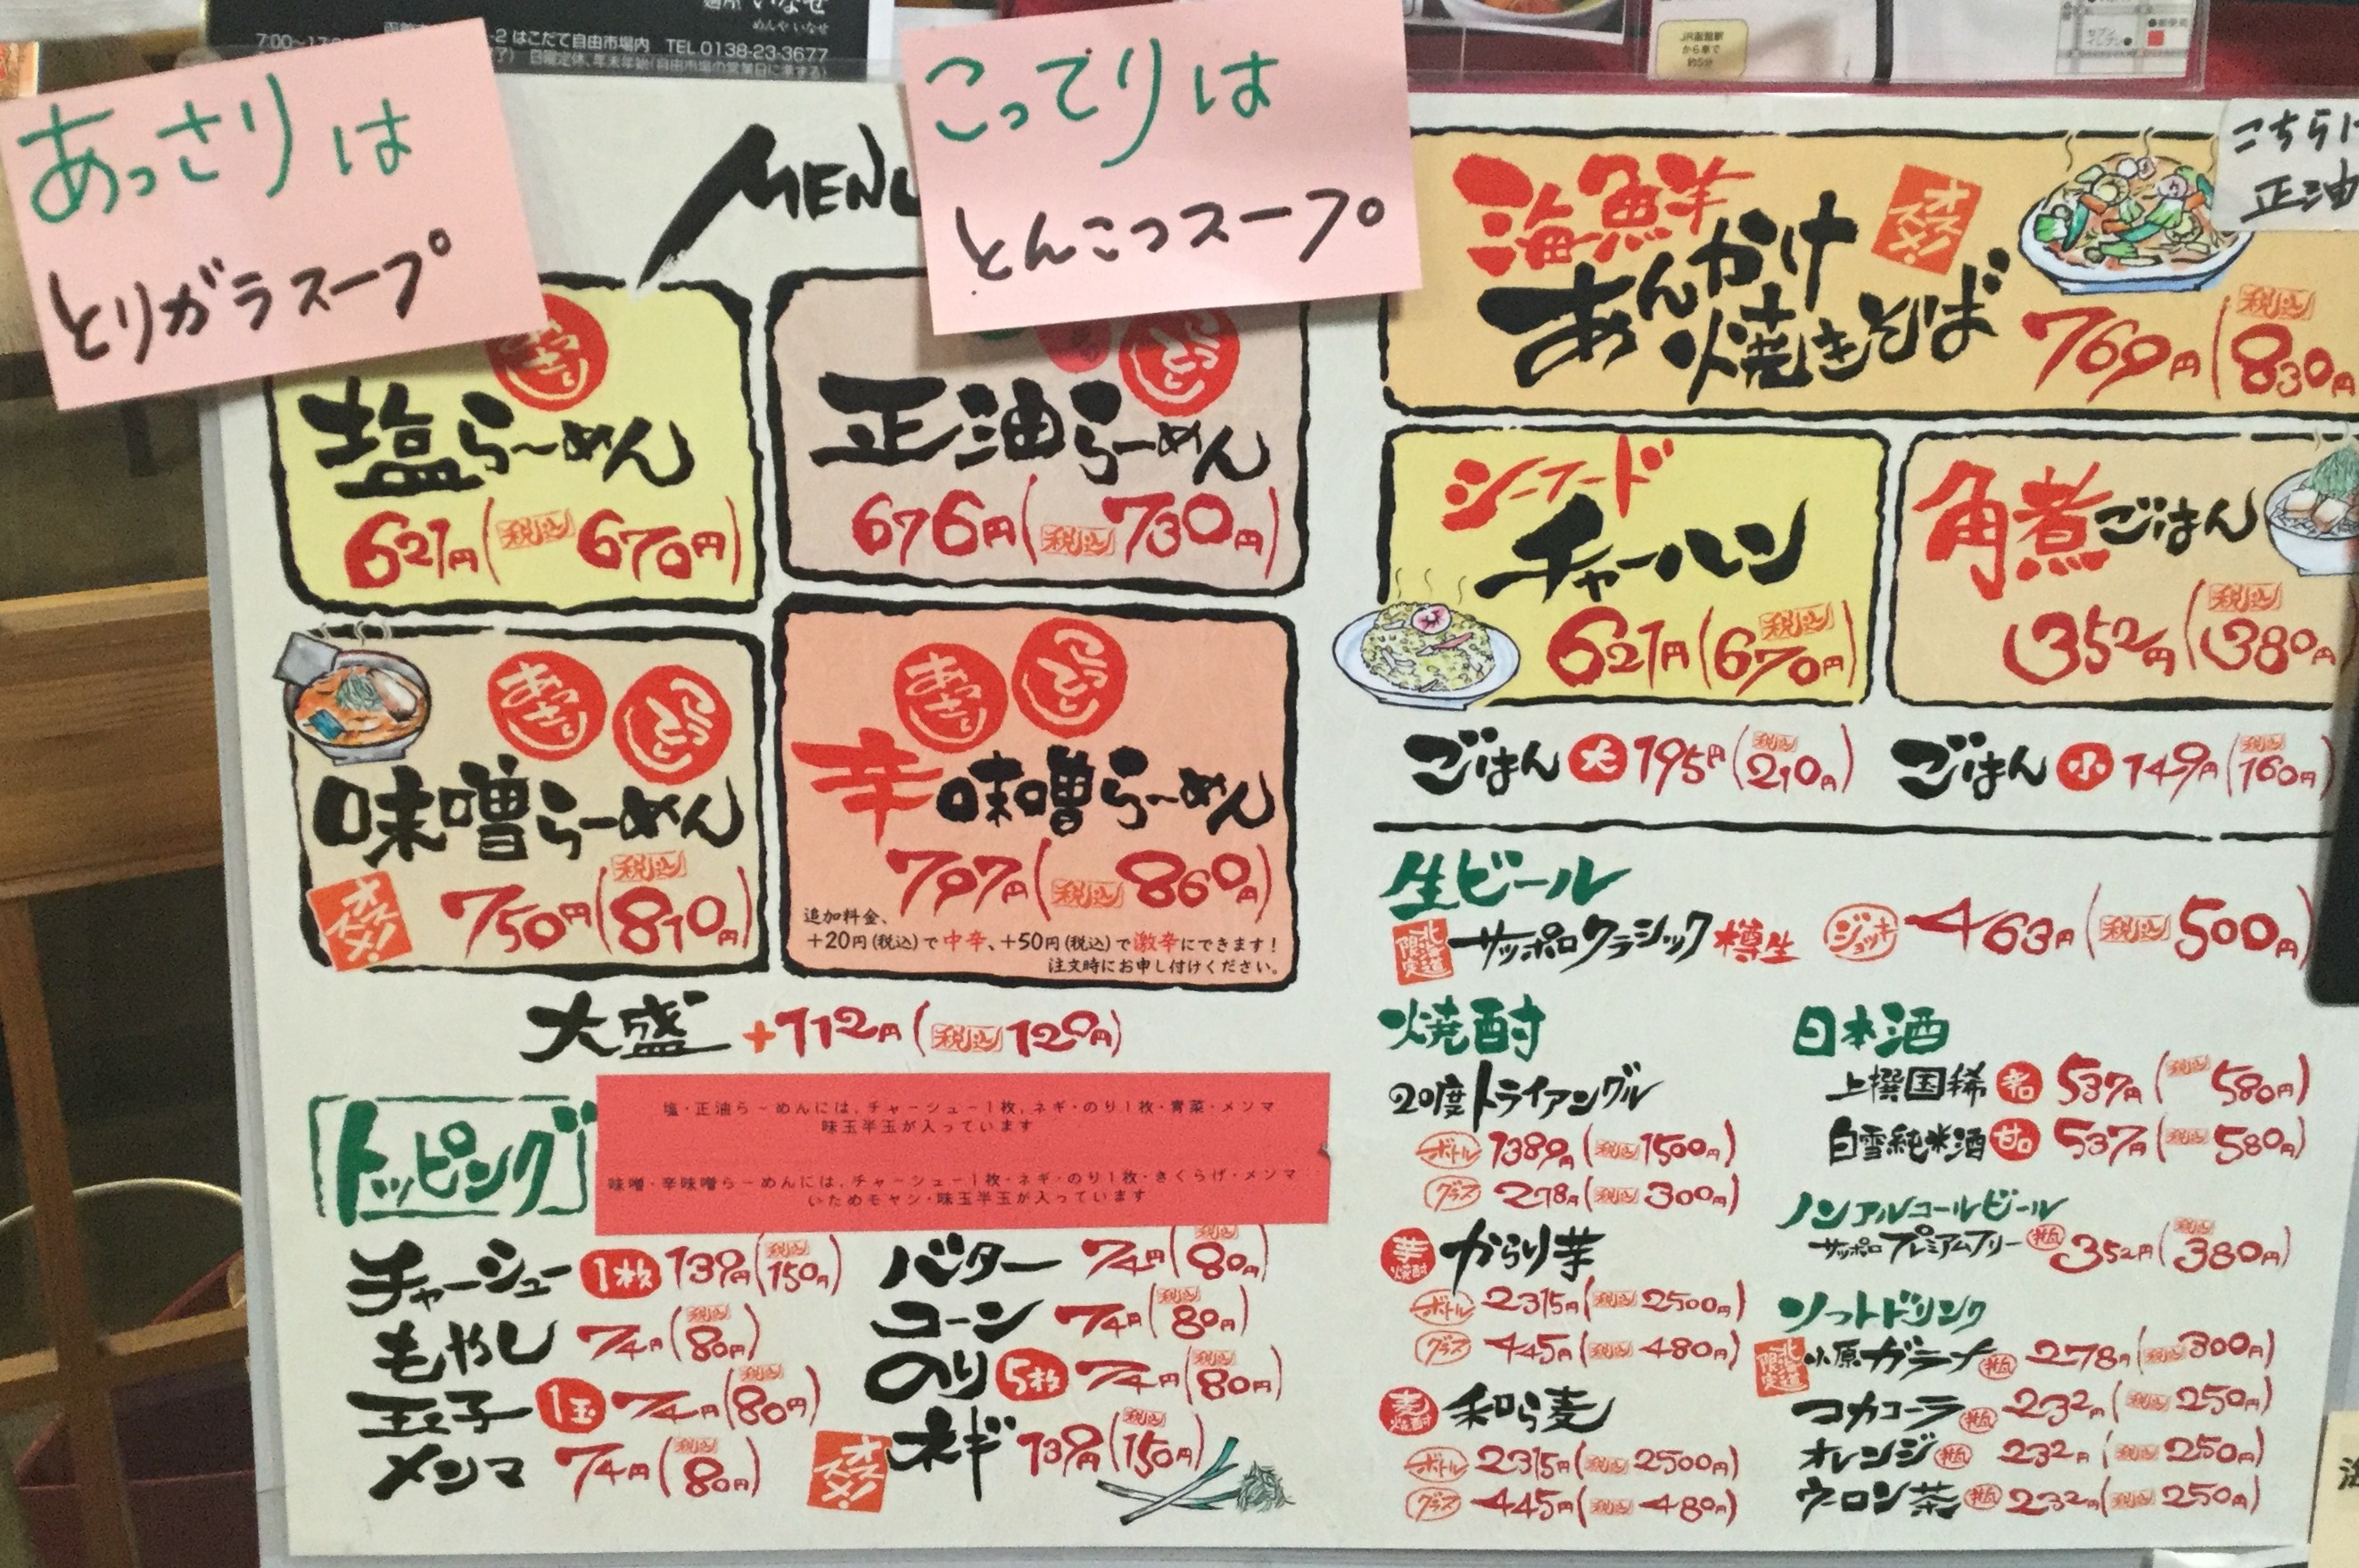 麺屋 いなせ
めんや いなせ
-2 はこだて自由市場内 TEL 0138-23-3677
日曜定休、年末年始(自由市場の営業日に準ずる)
JR函館駅
から車で
約5分
セブン
イレブン
あっさりは
とりガラスープ
こってりは
とんこつスープ
MENU
あっさり
塩ら〜めん
621円(税込670円)
こってり
正油らーめん
676円(税込730円)
あっさり こってり
味噌らーめん
オススメ!
750円(税込810円)
あっさり こってり
辛味噌ら〜めん
797円(税込860円)
追加料金、
+20円(税込)で中辛、+50円(税込)で激辛にできます!
注文時にお申し付けください。
大盛 +112円(税込120円)
トッピング
塩・正油ら〜めんには、チャーシュー1枚、ネギ・のり1枚・青菜・メンマ
味玉半玉が入っています
味噌・辛味噌ら〜めんには、チャーシュー1枚・ネギ・のり1枚・きくらげ・メンマ
いためモヤシ・味玉半玉が入っています
チャーシュー 1枚 139円(税込150円)
もやし 74円(税込80円)
玉子 1玉 74円(税込80円)
メンマ 74円(税込80円)
バター 74円(税込80円)
コーン 74円(税込80円)
のり 5枚 74円(税込80円)
オススメ! ネギ 139円(税込150円)
海鮮
あんかけ
焼きそば
オススメ!
769円(税込830円
こちらは
正油
シーフード
チャーハン
621円(税込670円)
角煮ごはん
352円(税込380円
ごはん 大 195円(税込210円)
ごはん 小 149円(税込160円)
生ビール
北海道限定 サッポロクラシック樽生 ジョッキ 463円(税込500円)
焼酎
20度トライアングル
ボトル 1389円(税込1500円)
グラス 278円(税込300円)
芋焼酎 からり芋
ボトル 2315円(税込2500円)
グラス 445円(税込480円)
麦焼酎 和ら麦
ボトル 2315円(税込2500円)
グラス 445円(税込480円)
日本酒
上撰国稀 辛口 537円(税込580円)
白雪純米酒 甘口 537円(税込580円)
ノンアルコールビール
サッポロプレミアムフリー 瓶 352円(税込380円)
ソフトドリンク
北海道限定 小原ガラナ 瓶 278円(税込300円)
コカコーラ 瓶 232円(税込250円)
オレンジ 瓶 232円(税込250円)
ウーロン茶 瓶 232円(税込250円)